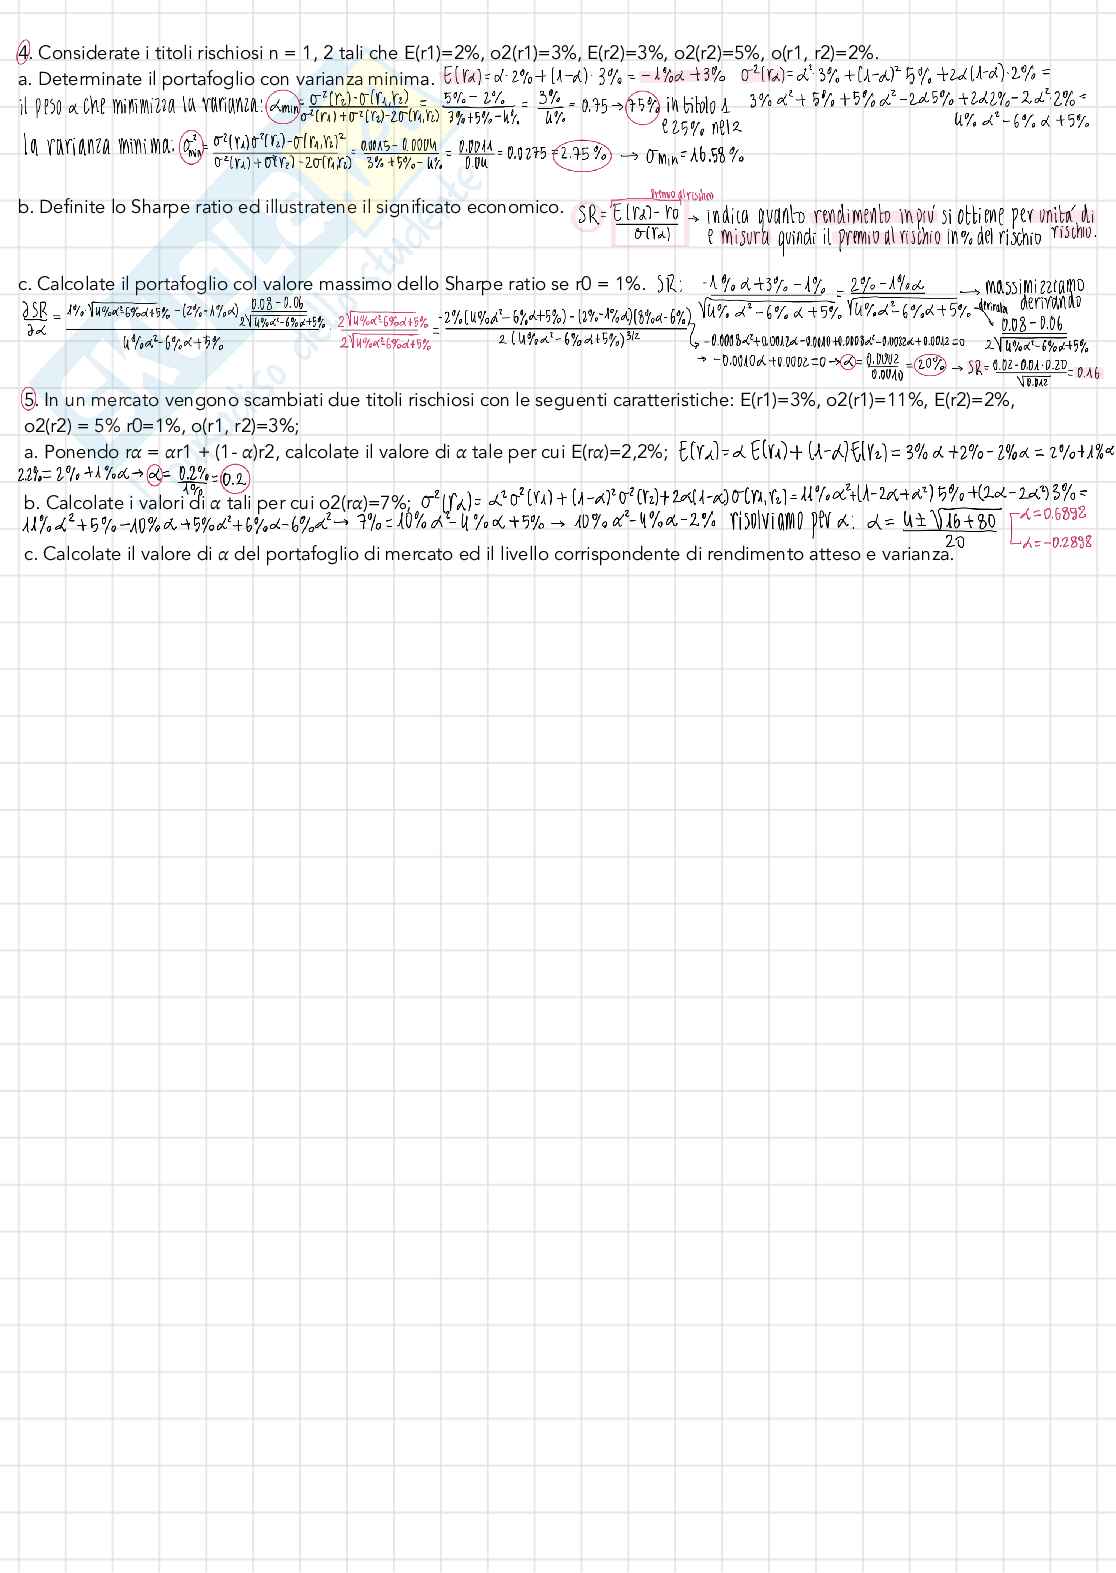 4. Considerate i titoli rischiosi n = 1, 2 tali che E(r1)=2%, o2(r1)=3%, E(r2)=3%, o2(r2)=5%, o(r1, r2)=2%.
a. Determinate il portafoglio con varianza minima. E(rα)=α·2%+(1-α)·3%=-1%α+3% σ²(rα)=α²3%+(1-α)²5%+2α(1-α)·2%=
il peso α che minimizza la varianza: αmin=σ²(r2)-σ(r1,r2)/σ²(r1)+σ²(r2)-2σ(r1,r2)=5%-2%/3%+5%-4%=3%/4%=0.75→75% in titolo 1 e 25% nel 2
3%α²+5%+5%α²-2α5%+2α2%-2α²2%=
4%α²-6%α+5%
la varianza minima: σ²min=σ²(r1)σ²(r2)-σ(r1,r2)²/σ²(r1)+σ²(r2)-2σ(r1,r2)=0.0015-0.0004/3%+5%-4%=0.0011/0.04=0.0275=2.75%→σmin=16.58%
Premio al rischio
b. Definite lo Sharpe ratio ed illustratene il significato economico. SR=E(rα)-r0/σ(rα)→indica quanto rendimento in piú si ottiene per unitá di rischio.
e misura quindi il premio al rischio in % del rischio
c. Calcolate il portafoglio col valore massimo dello Sharpe ratio se r0 = 1%. SR: -1%α+3%-1%/√4%α²-6%α+5%=2%-1%α/√4%α²-6%α+5%→massimizziamo derivando
derivata
0.08-0.06/2√4%α²-6%α+5%
∂SR/∂α=1%√4%α²-6%α+5%-(2%-1%α)0.08-0.06/2√4%α²-6%α+5%/4%α²-6%α+5% 2√4%α²-6%α+5%/2√4%α²-6%α+5%=-2%(4%α²-6%α+5%)-(2%-1%α)(8%α-6%)/2(4%α²-6%α+5%)^3/2
→-0.0008α²+0.0012α-0.0010+0.0008α²-0.0022α+0.0012=0
→-0.0010α+0.0002=0→α=0.0002/0.0010=20%→SR=0.02-0.01·0.20/√0.012=0.16
5. In un mercato vengono scambiati due titoli rischiosi con le seguenti caratteristiche: E(r1)=3%, o2(r1)=11%, E(r2)=2%,
o2(r2) = 5% r0=1%, o(r1, r2)=3%;
a. Ponendo rα = αr1 + (1 - α)r2, calcolate il valore di α tale per cui E(rα)=2,2%; E(rα)=αE(r1)+(1-α)E(r2)=3%α+2%-2%α=2%+1%α
2.2%=2%+1%α→α=0.2%/1%=0.2
b. Calcolate i valori di α tali per cui o2(rα)=7%; σ²(rα)=α²σ²(r1)+(1-α)²σ²(r2)+2α(1-α)σ(r1,r2)=11%α²+(1-2α+α²)5%+(2α-2α²)3%=
11%α²+5%-10%α+5%α²+6%α-6%α²→7%=10%α²-4%α+5%→10%α²-4%α-2% risolviamo per α: α=4±√16+80/20
α=0.6892
α=-0.2898
c. Calcolate il valore di α del portafoglio di mercato ed il livello corrispondente di rendimento atteso e varianza.